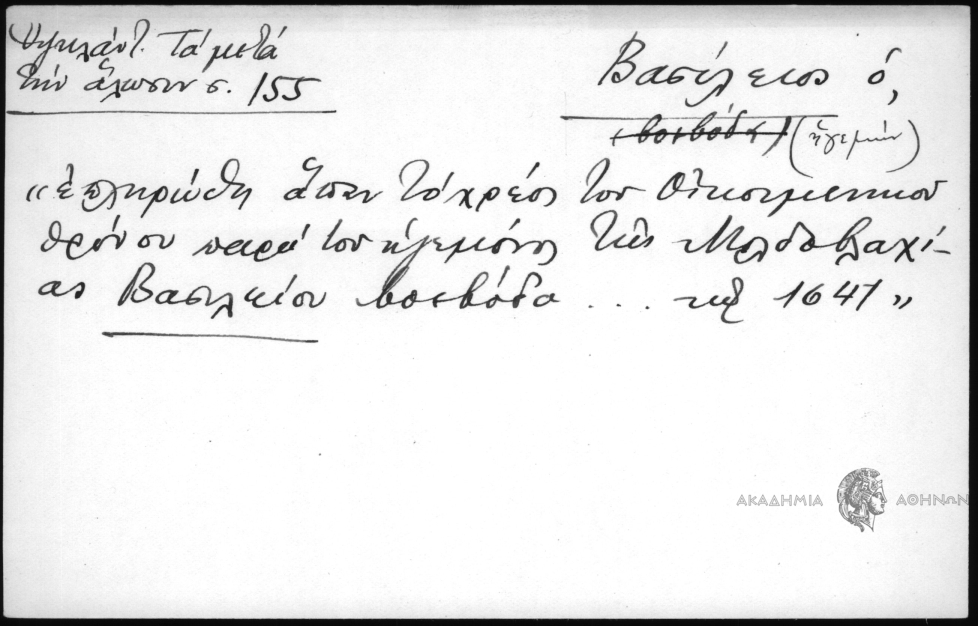 Ὑψηλάντ. Τά μετά
τήν ἅλωσιν σ. 155
Βασίλειος ὁ,
(βοεβόδας) (ἡγεμών)
"ἐπληρώθη ἅπαν τό χρέος τοῦ Οἰκουμενικοῦ
θρόνου παρά τοῦ ἡγεμόνος τῆς Μολδοβλαχί-
ας Βασιλείου βοεβόδα ... 1641"
ΑΚΑΔΗΜΙΑ ΑΘΗΝΩΝ